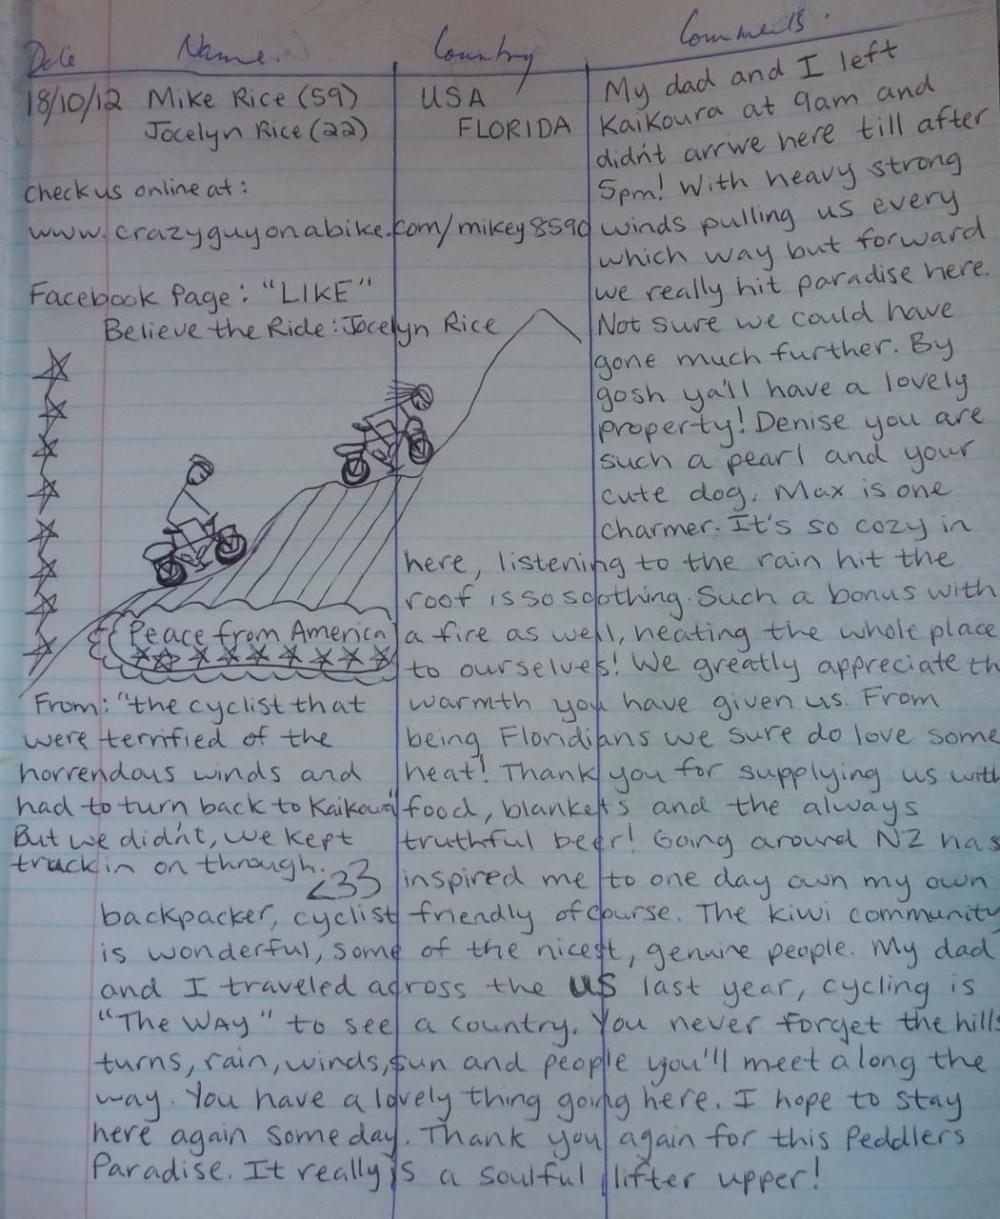 Date Name. Country Comments.
18/10/12 Mike Rice (59) USA
Jocelyn Rice (22) FLORIDA
check us online at:
www.crazyguyonabike.com/mikey8590
Facebook Page: "LIKE"
Believe the Ride: Jocelyn Rice
Peace from America
From: "the cyclist that
were terrified of the
horrendous winds and
had to turn back to Kaikoura"
But we didn't, we kept
truckin on through.
<33
My dad and I left
Kaikoura at 9am and
didn't arrive here till after
5pm! With heavy strong
winds pulling us every
which way but forward
we really hit paradise here.
Not sure we could have
gone much further. By
gosh ya'll have a lovely
property! Denise you are
such a pearl and your
cute dog, Max is one
charmer. It's so cozy in
here, listening to the rain hit the
roof is so soothing. Such a bonus with
a fire as well, heating the whole place
to ourselves! We greatly appreciate th
warmth you have given us. From
being Floridians we sure do love some
heat! Thank you for supplying us with
food, blankets and the always
truthful beer! Going around NZ has
inspired me to one day own my own
backpacker, cyclist friendly ofcourse. The kiwi community
is wonderful, some of the nicest, genuine people. My dad
and I traveled across the US last year, cycling is
"The WAY" to see a country. You never forget the hills
turns, rain, winds, sun and people you'll meet along the
way. You have a lovely thing going here. I hope to stay
here again someday. Thank you again for this Peddlers
Paradise. It really is a soulful lifter upper!